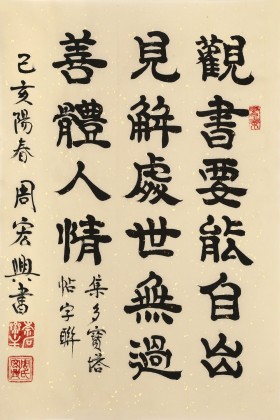 觀書要能自出
見解處世無過
善體人情
集多寶塔
帖字聯
己亥陽春周宏興書